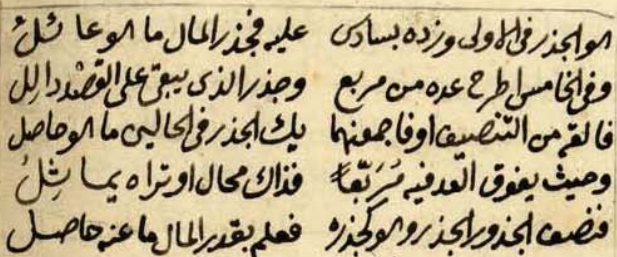 هو الجذر في الاولى وزده بسادس عليه فجذر المال ما هو عائل
وفي الخامس اطرح عده من مربع وجذر الذي يبقى على القصد دالل
فالقه من التنصيف او فاجمعنهما يك الجذر في الحالين ما هو حاصل
وحيث يفوق العد فيه مربعا فذاك محال او تراه يماثل
فنصف الجذور الجذر وهو كجذره فعلم بقدر المال ما عنه حاصل